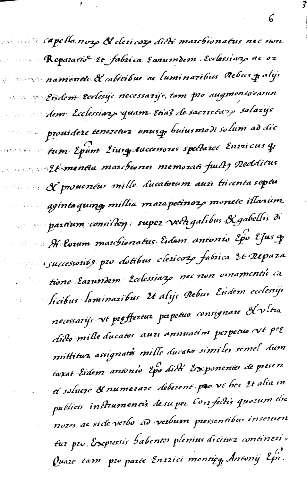 6
capellanorũ & clericorũ dicti marchionatus nec non
Reparatio Et fabrica Earundem Ecclesiarũ ac or
namentis & calicibus ac luminaribus Rebus & alijs
Eisdem Ecclesijs necessarijs, tam pro augmentorum
dem Ecclesiarũ quam Etiã de sacrestaris salarijs
providere teneretur huiusmodi solum ad dic
tum Epum Eiusque successores spectaret Enricus
Et mentia marchiones memorati Redditus
& proventus mille ducatorum auri tricenta septua
aginta quinque millia marapetinorũ monete illarum
partium super vectigalibus & gabellis di
cti Eorum marchionatus Eidem antonio Epo Eius
successoribus pro dotibus clericorũ fabrica Et Repara
tione Earundem Ecclesiarũ nec non ornamentis ca
licibus luminaribus Et alijs Rebus Eisdem ecclesijs
necessarijs ut prefertur perpetuo consignare & ultra
dicto mille ducatos auri annuatim perpetuo ut pre
mittitur assignatos mille ducatos similes semel dum
taxat Eidem antonio Epo dicti Exponentes de presen
ti solvere & numerare deberent pro ut hec Et alia in
publicis instrumentis desuper Confectis quorum the
nores ac si de verbo ad verbum presentibus inseren
tur pro Expressis habentes plenius dicitur contineri
Quare tam pro parte Enrici mentieque Antonij Epi